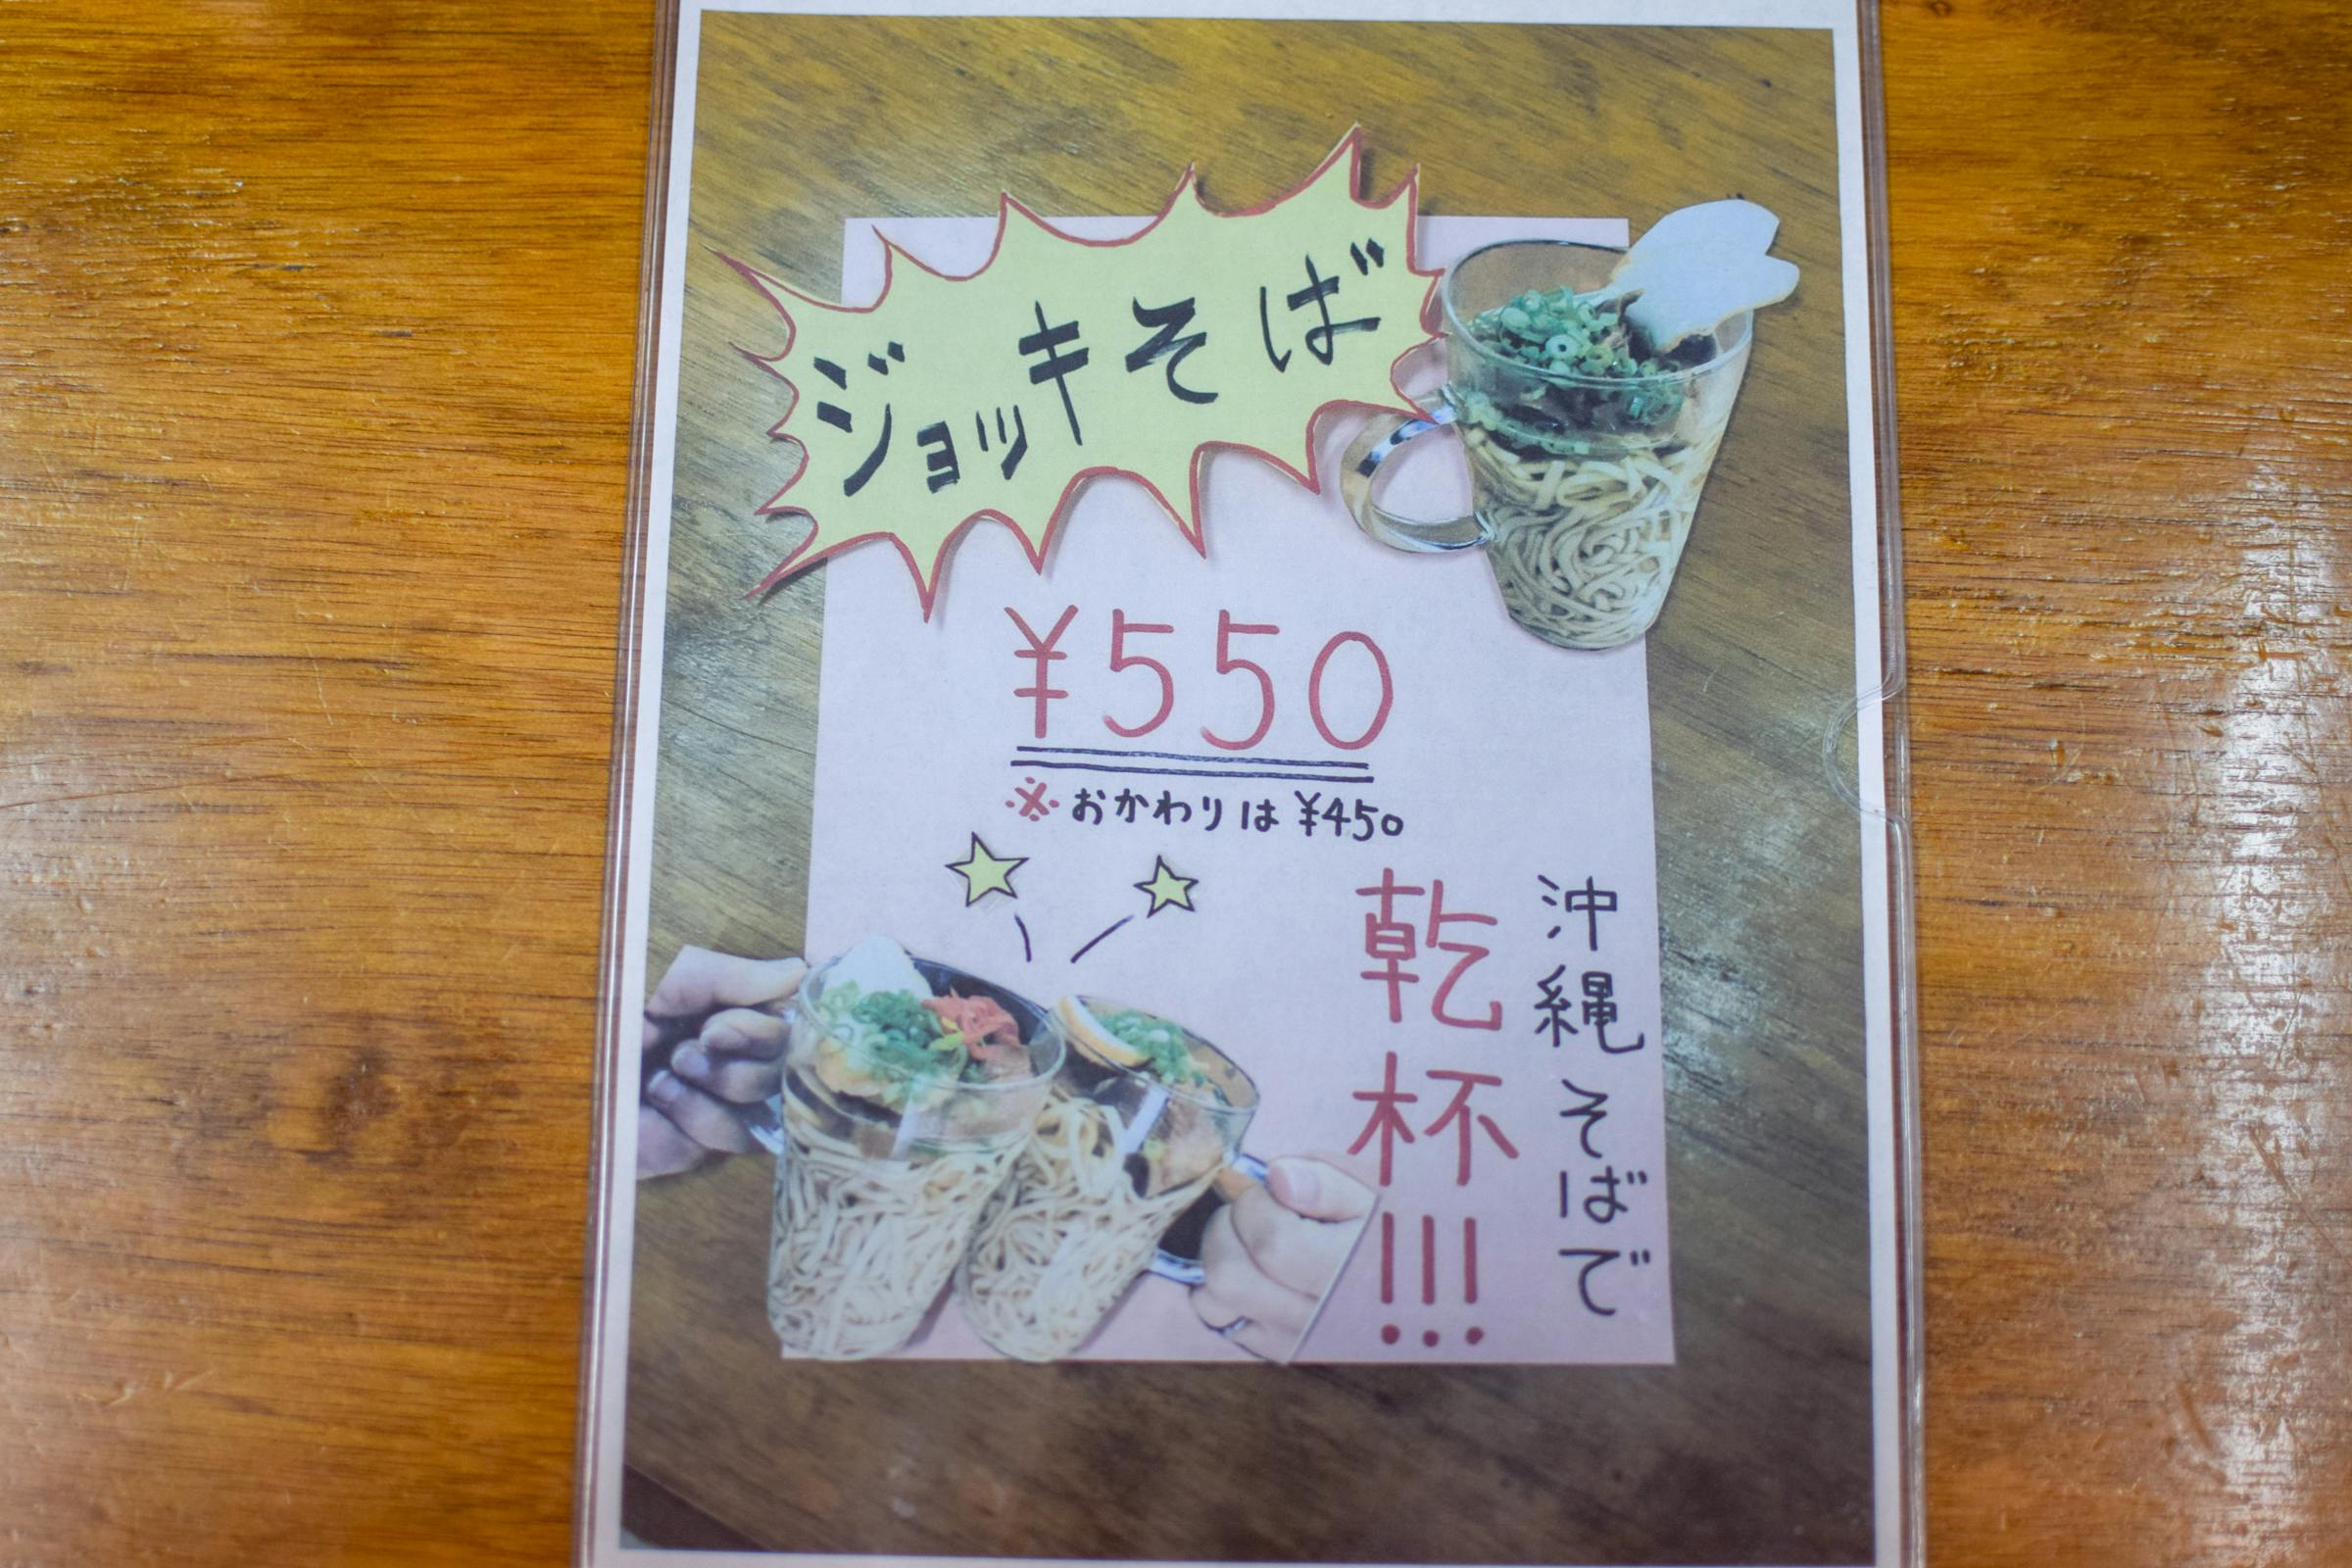 ジョッキそば
¥550
※おかわりは¥450
沖縄そばで
乾杯!!!